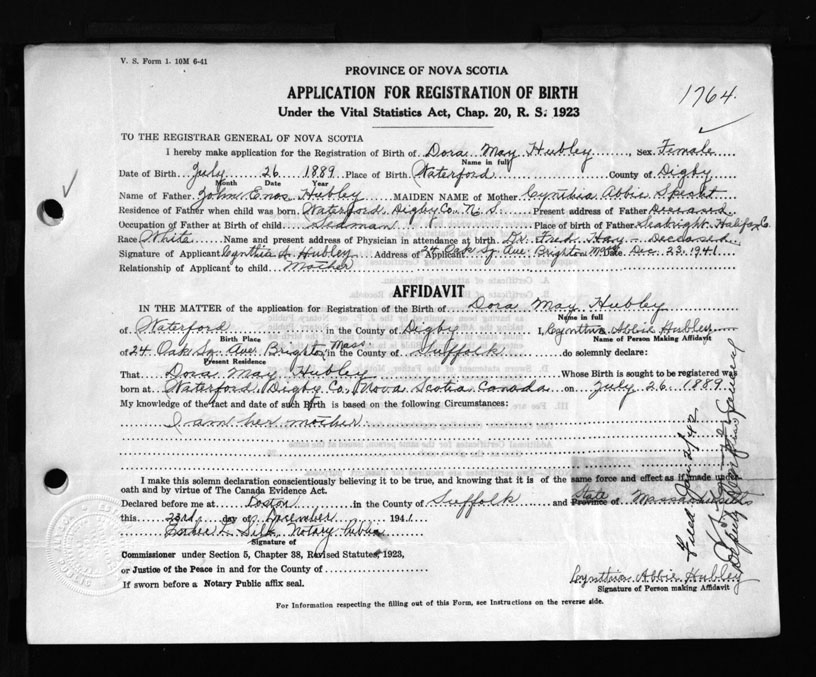 V. S. Form 1. 10M 6-41
PROVINCE OF NOVA SCOTIA
APPLICATION FOR REGISTRATION OF BIRTH
1764.
Under the Vital Statistics Act, Chap. 20, R. S. 1923
TO THE REGISTRAR GENERAL OF NOVA SCOTIA
I hereby make application for the Registration of Birth of Dora May Hubley, Sex Female
Name in full
Date of Birth July 26 1889 Place of Birth Waterford County of Digby
Month Date Year
Name of Father John Enos Hubley MAIDEN NAME of Mother Cynthia Abbie Specht
Residence of Father when child was born Waterford, Digby Co. N. S. Present address of Father Deceased
Occupation of Father at time of Birth Place of birth of Father Seabright Halifax Co.
Race White Name and present address of Physician in attendance at birth. Dr. Fred Hay - Deceased
Signature of Applicant Cynthia A. Hubley Address of Applicant 24 Oak Sq. Ave. Brighton Mass Date Dec. 23, 1941
Relationship of Applicant to child Mother
AFFIDAVIT
IN THE MATTER of the application for Registration of the Birth of Dora May Hubley
Name in full
of Waterford in the County of Digby I, Cynthia Abbie Hubley
Birth Place Name of Person Making Affidavit
of 24 Oak Sq. Ave. Brighton Mass. in the County of Suffolk do solemnly declare:
Present Residence
That Dora May Hubley Whose Birth is sought to be registered was
born at Waterford, Digby Co., Nova Scotia Canada on July 26 1889
My knowledge of the fact and date of such Birth is based on the following Circumstances:
I am her mother
I make this solemn declaration conscientiously believing it to be true, and knowing that it is of the same force and effect as if made under
oath and by virtue of The Canada Evidence Act.
Declared before me at Boston in the County of Suffolk and Province of State Massachusetts
this 23rd day of December 1941
Esther L. Silk Notary Public
Signature of
Commissioner under Section 5, Chapter 38, Revised Statutes 1923,
or Justice of the Peace in and for the County of
If sworn before a Notary Public affix seal.
Cynthia Abbie Hubley
Signature of Person making Affidavit
For Information respecting the filling out of this Form, see Instructions on the reverse side.
Filed Jan 2/42
Deputy